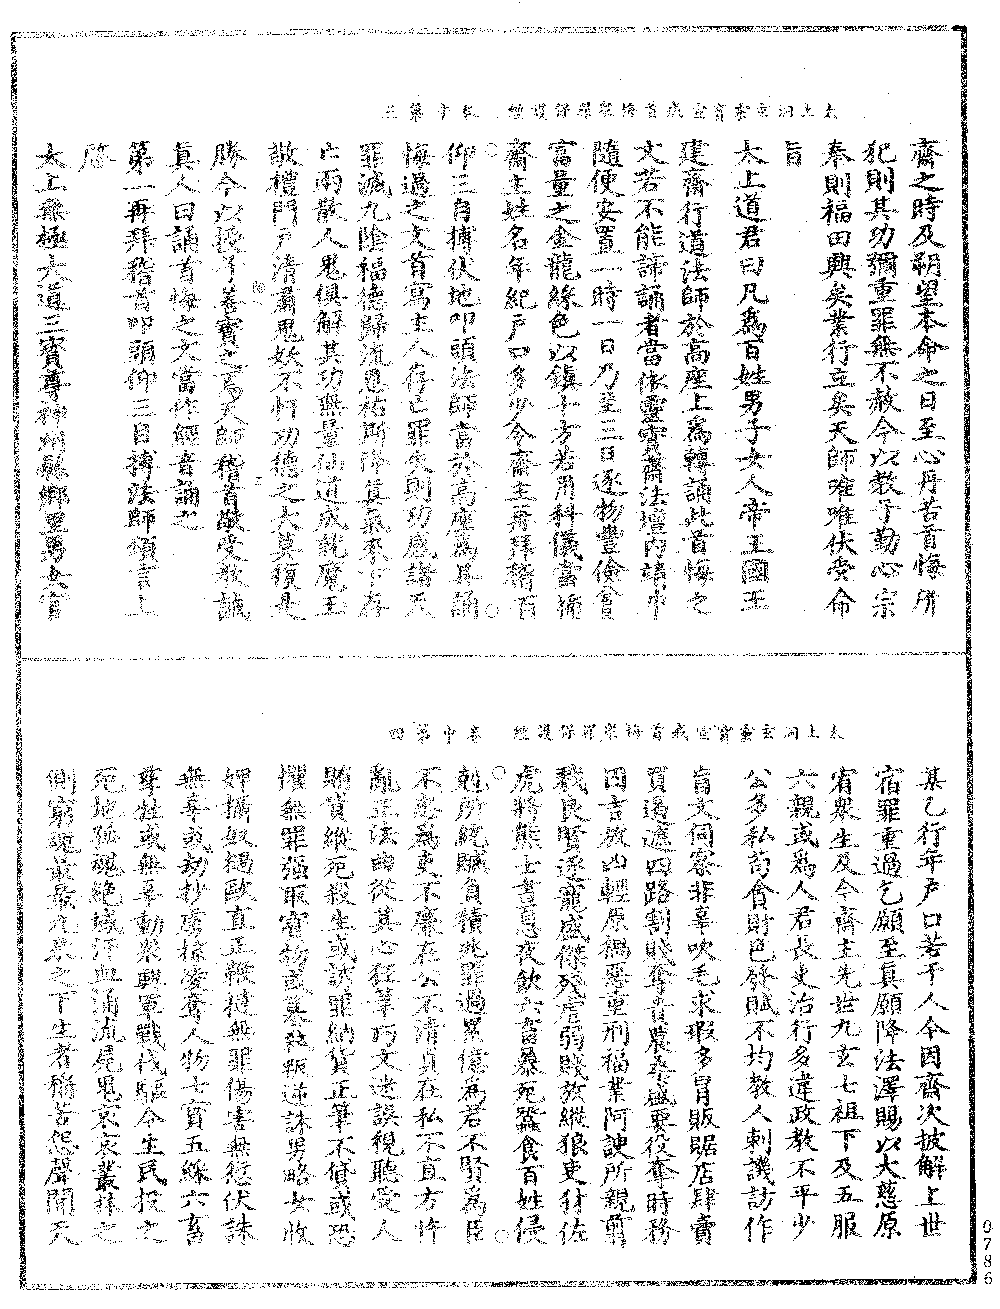 太上洞玄靈寶宣戒首悔眾罪保護經 卷中第三
齋之時及朔望本命之日至心丹苦首悔所
犯則其功彌重罪無不赦今以教子勤心宗
奉則福田興矣業行立矣天師唯唯伏受命
旨
太上道君曰凡為百姓男子女人帝王國王
建齋行道法師於高座上為轉誦此首悔之
文若不能諦誦者當依靈寶齋法壇內靖中
隨便安置一時一日乃至三日逐物豐儉會
富量之金龍絲色以鎮十方若用科儀當摘
齋主姓名年紀戶口多少令齋主再拜稽首
仰三自搏伏地叩頭法師當於高座為其誦
悔過之文首寫主人存亡罪失則功感諸天
罪滅九陰福德歸流恩祐斯降真氣來下存
亡兩散人鬼俱解其功無量仙道成就魔王
敬禮門戶清肅鬼妖不忓功德之大莫復是
勝今以授子善寶之焉天師稽首敬受教誡
真人曰誦首悔之文當作經音誦之
第一再拜稽首叩頭仰三自搏法師頌言上
啓
太上無極大道三寶尊神州縣鄉里男女官
太上洞玄靈寶宣戒首悔眾罪保護經 卷中第四
某乙行年戶口若干人今因齋次披解上世
宿罪重過乞願至真願降法澤賜以大慈原
宥眾生及今齋主先世九玄七祖下及五服
六親或為人君長吏治行多違政教不平少
公多私苟會財色發賦不均教人刺譏訪作
盲文伺察非辜吹毛求瑕多冒販賜店肆賣
買過遮四路割賤奪貴農桑盛要役奪時務
四吉放凶輕原禍惡重刑福業阿諛所親剪
戮良賢逐寵盛傑殘虐弱賤放縱狼吏豺佐
虎將熊士晝息夜飲六畜暴死蠶食百姓侵
剋所統贓負積兆罪過累億為君不賢為臣
不忠為吏不廉在公不清貞在私不直方忤
亂正法曲從其心狂筆巧文迷誤視聽受人
賕貨縱死殺生或誘罪納貨正筆不貸或恐
懼無罪強取寶物或墓祑叛逆誅男略女收
婢攝奴檛敺直正鞭撻無罪傷害無愆伏誅
無辜或劫抄虜掠發奪人物七寶五綵六畜
犛牲或無辜動眾興軍戰伐驅令生民投之
死地孤魂絕域汗血涌流冤鬼哀哀叢莽之
側窮魂最最九泉之下生者稱苦怨聲聞天
0786